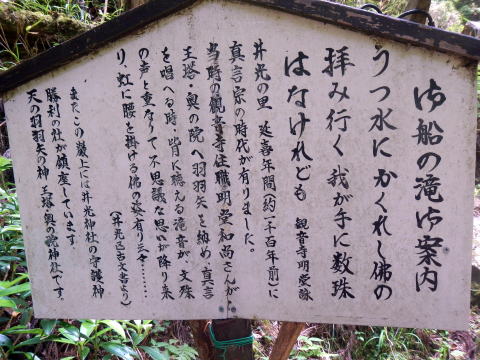 御船の滝御案内
うつ水にかくれし佛の
拝み行く我が手に数珠
はなけれども 観音寺明堂詠
井光の里 延喜年間(約一千百年前)に
真言宗の時代が有りました。
当時の観音寺住職明堂和尚さんが
王塔・奥の院へ羽羽矢を納め、真言
を唱へる時・皆に聴える滝音が、文珠
の声と重なりて不思議な思いが降り来
り、虹に腰を掛ける佛の姿有り云々……
(井光区古文書より)
またこの巌上には井光神社の守護神
勝利の社が鎮座しています。
天の羽羽矢の神 王塔・奥の院神社です。